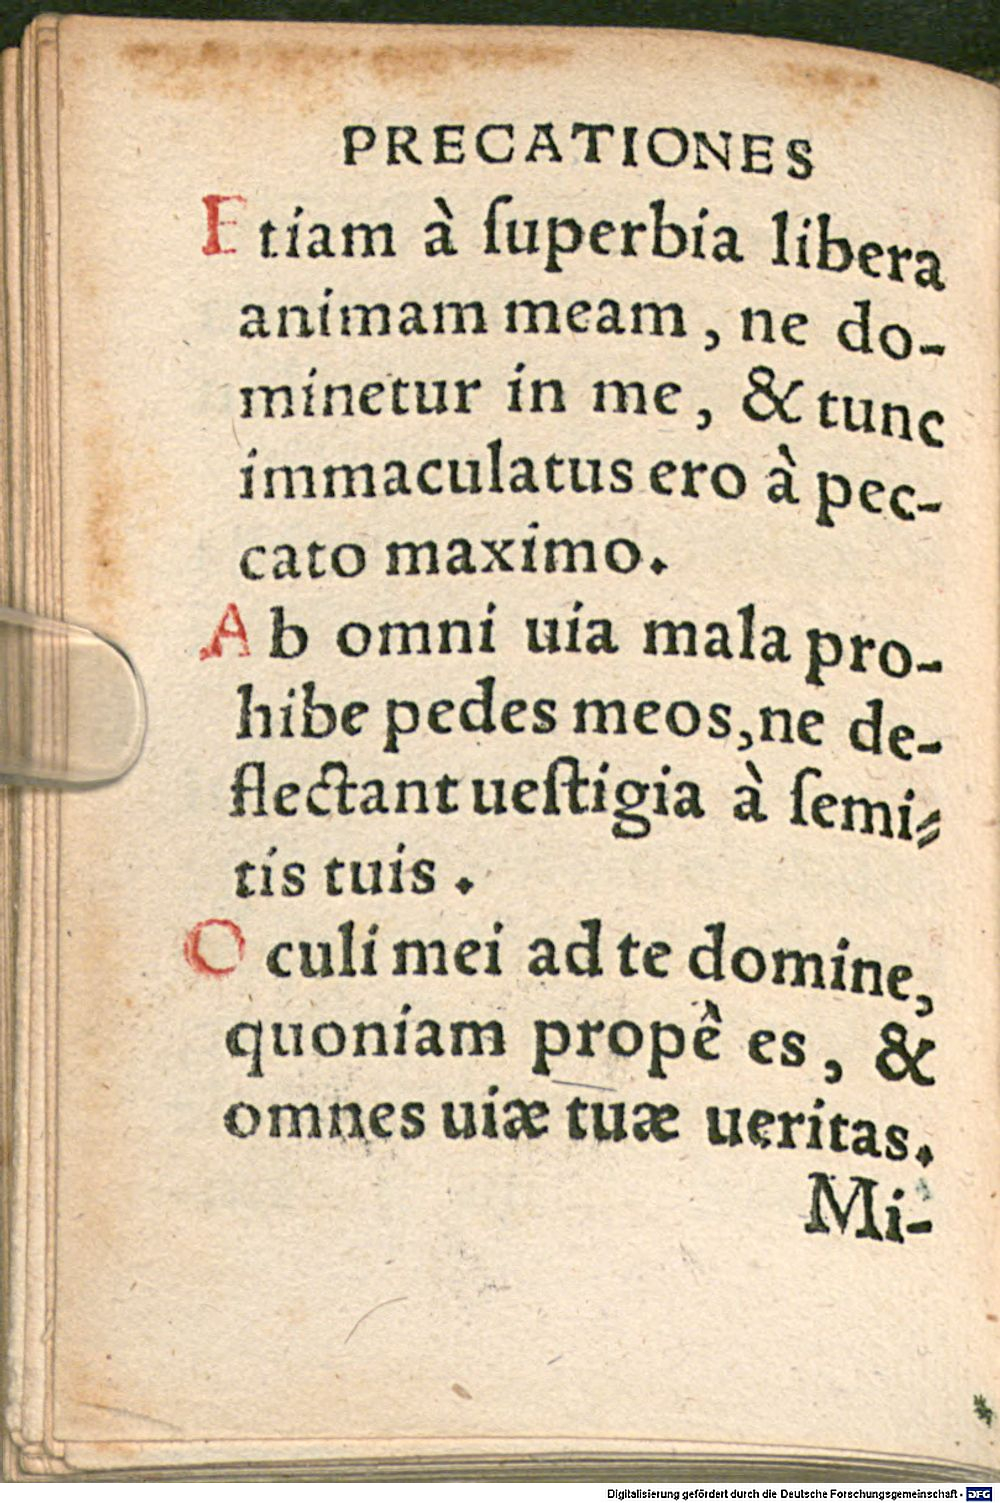 PRECATIONES
Etiam à ſuperbia libera
animam meam, ne do-
minetur in me, & tunc
immaculatus ero à pec-
cato maximo.
Ab omni uia mala pro-
hibe pedes meos, ne de-
flectant ueſtigia à ſemi-
tis tuis.
Oculi mei ad te domine,
quoniam propè es, &
omnes uiæ tuæ ueritas.
Mi-
Digitalisierung gefördert durch die Deutsche Forschungsgemeinschaft - DFG